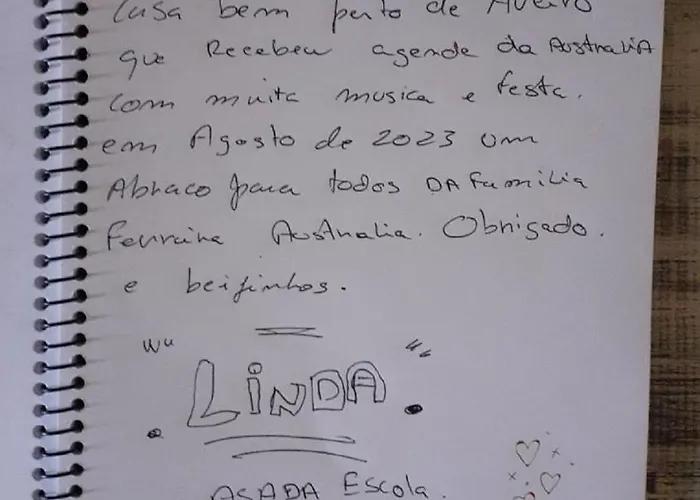 Casa bem perto de Aveiro
que Recebeu agende da AustraliA
com muita musica e festa.
em Agosto de 2023 um
Abraco para todos DA familia
Ferreira Australia. Obrigado.
e beijinhos.
LiNDA
ASADA Escola.